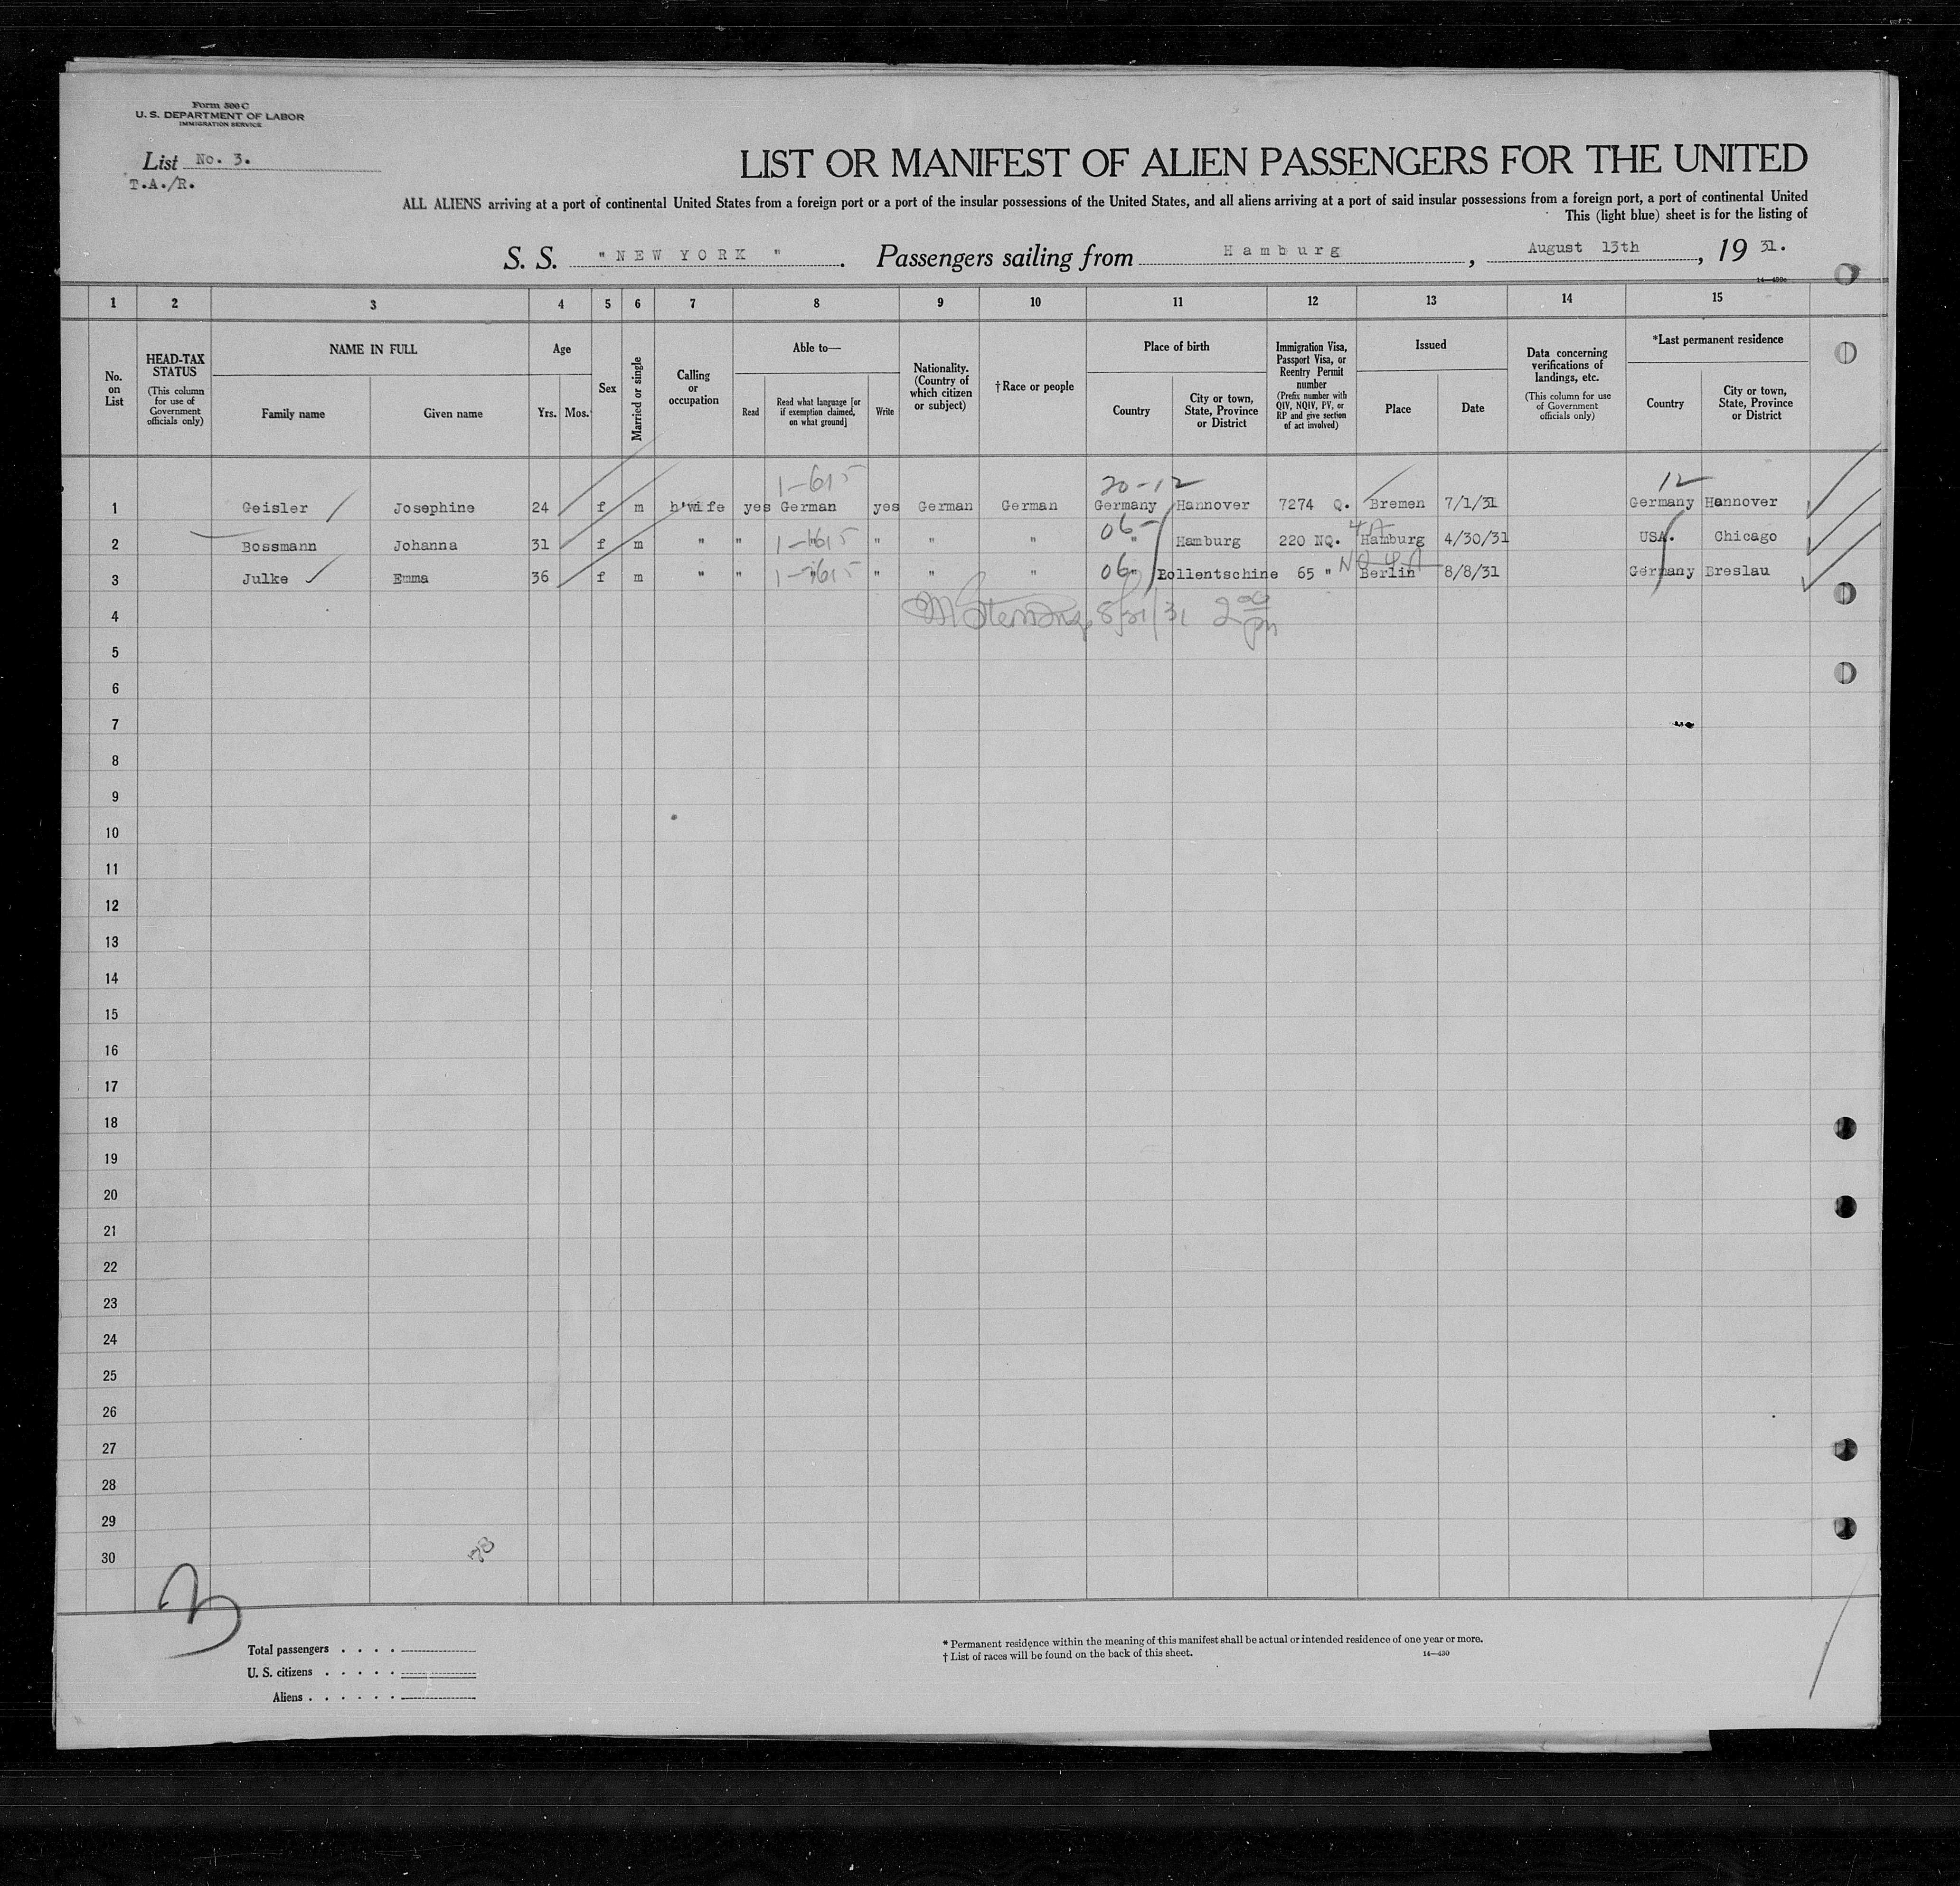 Form 500 C
U. S. DEPARTMENT OF LABOR
IMMIGRATION SERVICE
List No. 3.
T.A./R.
LIST OR MANIFEST OF ALIEN PASSENGERS FOR THE UNITED
ALL ALIENS arriving at a port of continental United States from a foreign port or a port of the insular possessions of the United States, and all aliens arriving at a port of said insular possessions from a foreign port, a port of continental United
This (light blue) sheet is for the listing of
S. S. "NEW YORK". Passengers sailing from Hamburg, August 13th, 1931.
14—430c
1 2 3 4 5 6 7 8 9 10 11 12 13 14 15
No. on List
HEAD-TAX STATUS (This column for use of Government officials only)
NAME IN FULL
Family name Given name
Age
Yrs. Mos.
Sex
Married or single
Calling or occupation
Able to—
Read Read what language [or if exemption claimed, on what ground] Write
Nationality. (Country of which citizen or subject)
†Race or people
Place of birth
Country City or town, State, Province or District
Immigration Visa, Passport Visa, or Reentry Permit number (Prefix number with QIV, NQIV, PV, or RP and give section of act involved)
Issued
Place Date
Data concerning verifications of landings, etc. (This column for use of Government officials only)
*Last permanent residence
Country City or town, State, Province or District
1-615 20-12 12
1 Geisler Josephine 24 f m h'wife yes German yes German German Germany Hannover 7274 Q. Bremen 7/1/31 Germany Hannover
1-615 06- 4A
2 Bossmann Johanna 31 f m " " " " " " " Hamburg 220 NQ. Hamburg 4/30/31 USA. Chicago
1-615 06 NQ 4A
3 Julke Emma 36 f m " " " " " " " Bollentschine 65 " Berlin 8/8/31 Germany Breslau
4 8/21/31 2 00 pm
5
6
7
8
9
10
11
12
13
14
15
16
17
18
19
20
21
22
23
24
25
26
27
28
29
30
3
Total passengers . . . .
U. S. citizens . . . . .
Aliens . . . . . .
* Permanent residence within the meaning of this manifest shall be actual or intended residence of one year or more.
† List of races will be found on the back of this sheet.
14—430